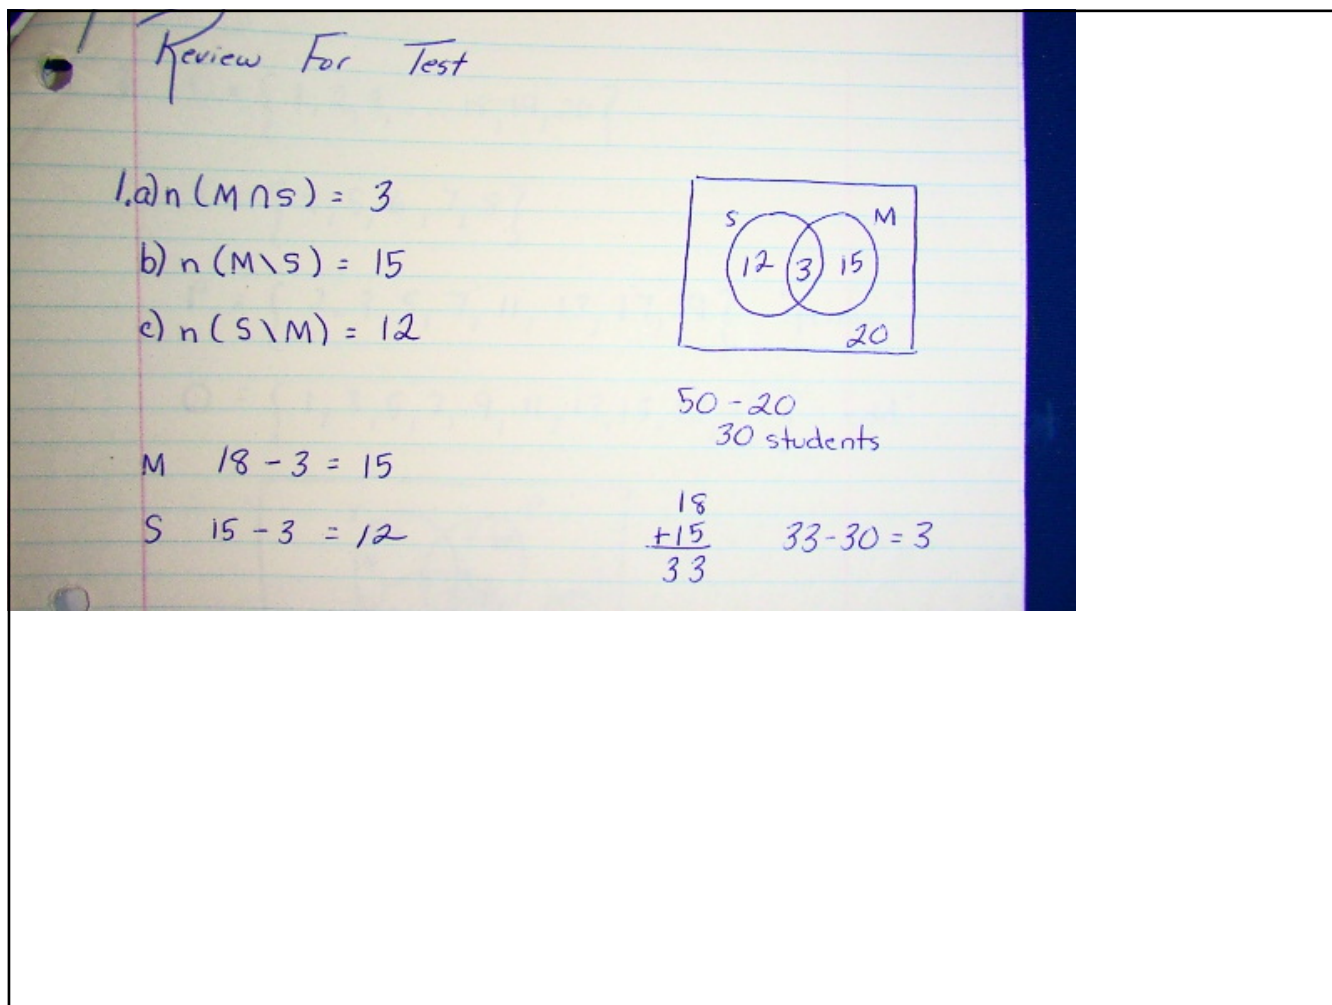 Review For Test
1.a) n (M ∩ S) = 3
b) n (M \ S) = 15
c) n (S \ M) = 12
S M
12 3 15
20
50 - 20
30 students
M 18 - 3 = 15
S 15 - 3 = 12
18
+15
33
33 - 30 = 3